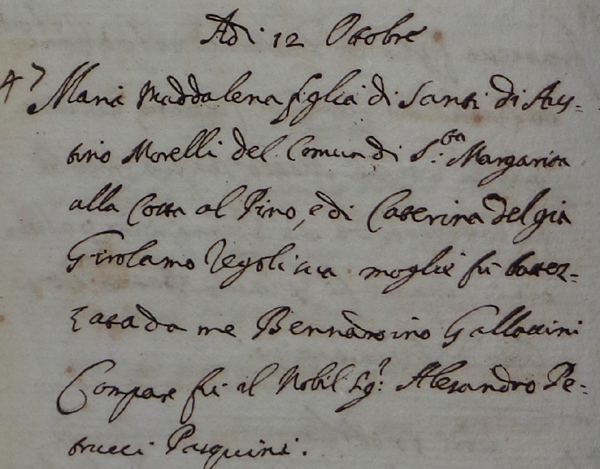 Adi 12 Ottobre
47 Maria Maddalena figlia di Santi di Aus-
tino Morelli del Comun di S.ta Margarita
alla Costa al Pino, e di Caterina del già
Girolamo Regoli sua moglie fù battez-
zata da me Bernardino Gallaccini
Compare fù il Nobil Sg.r Alesandro Pe-
trucci Pasquini.